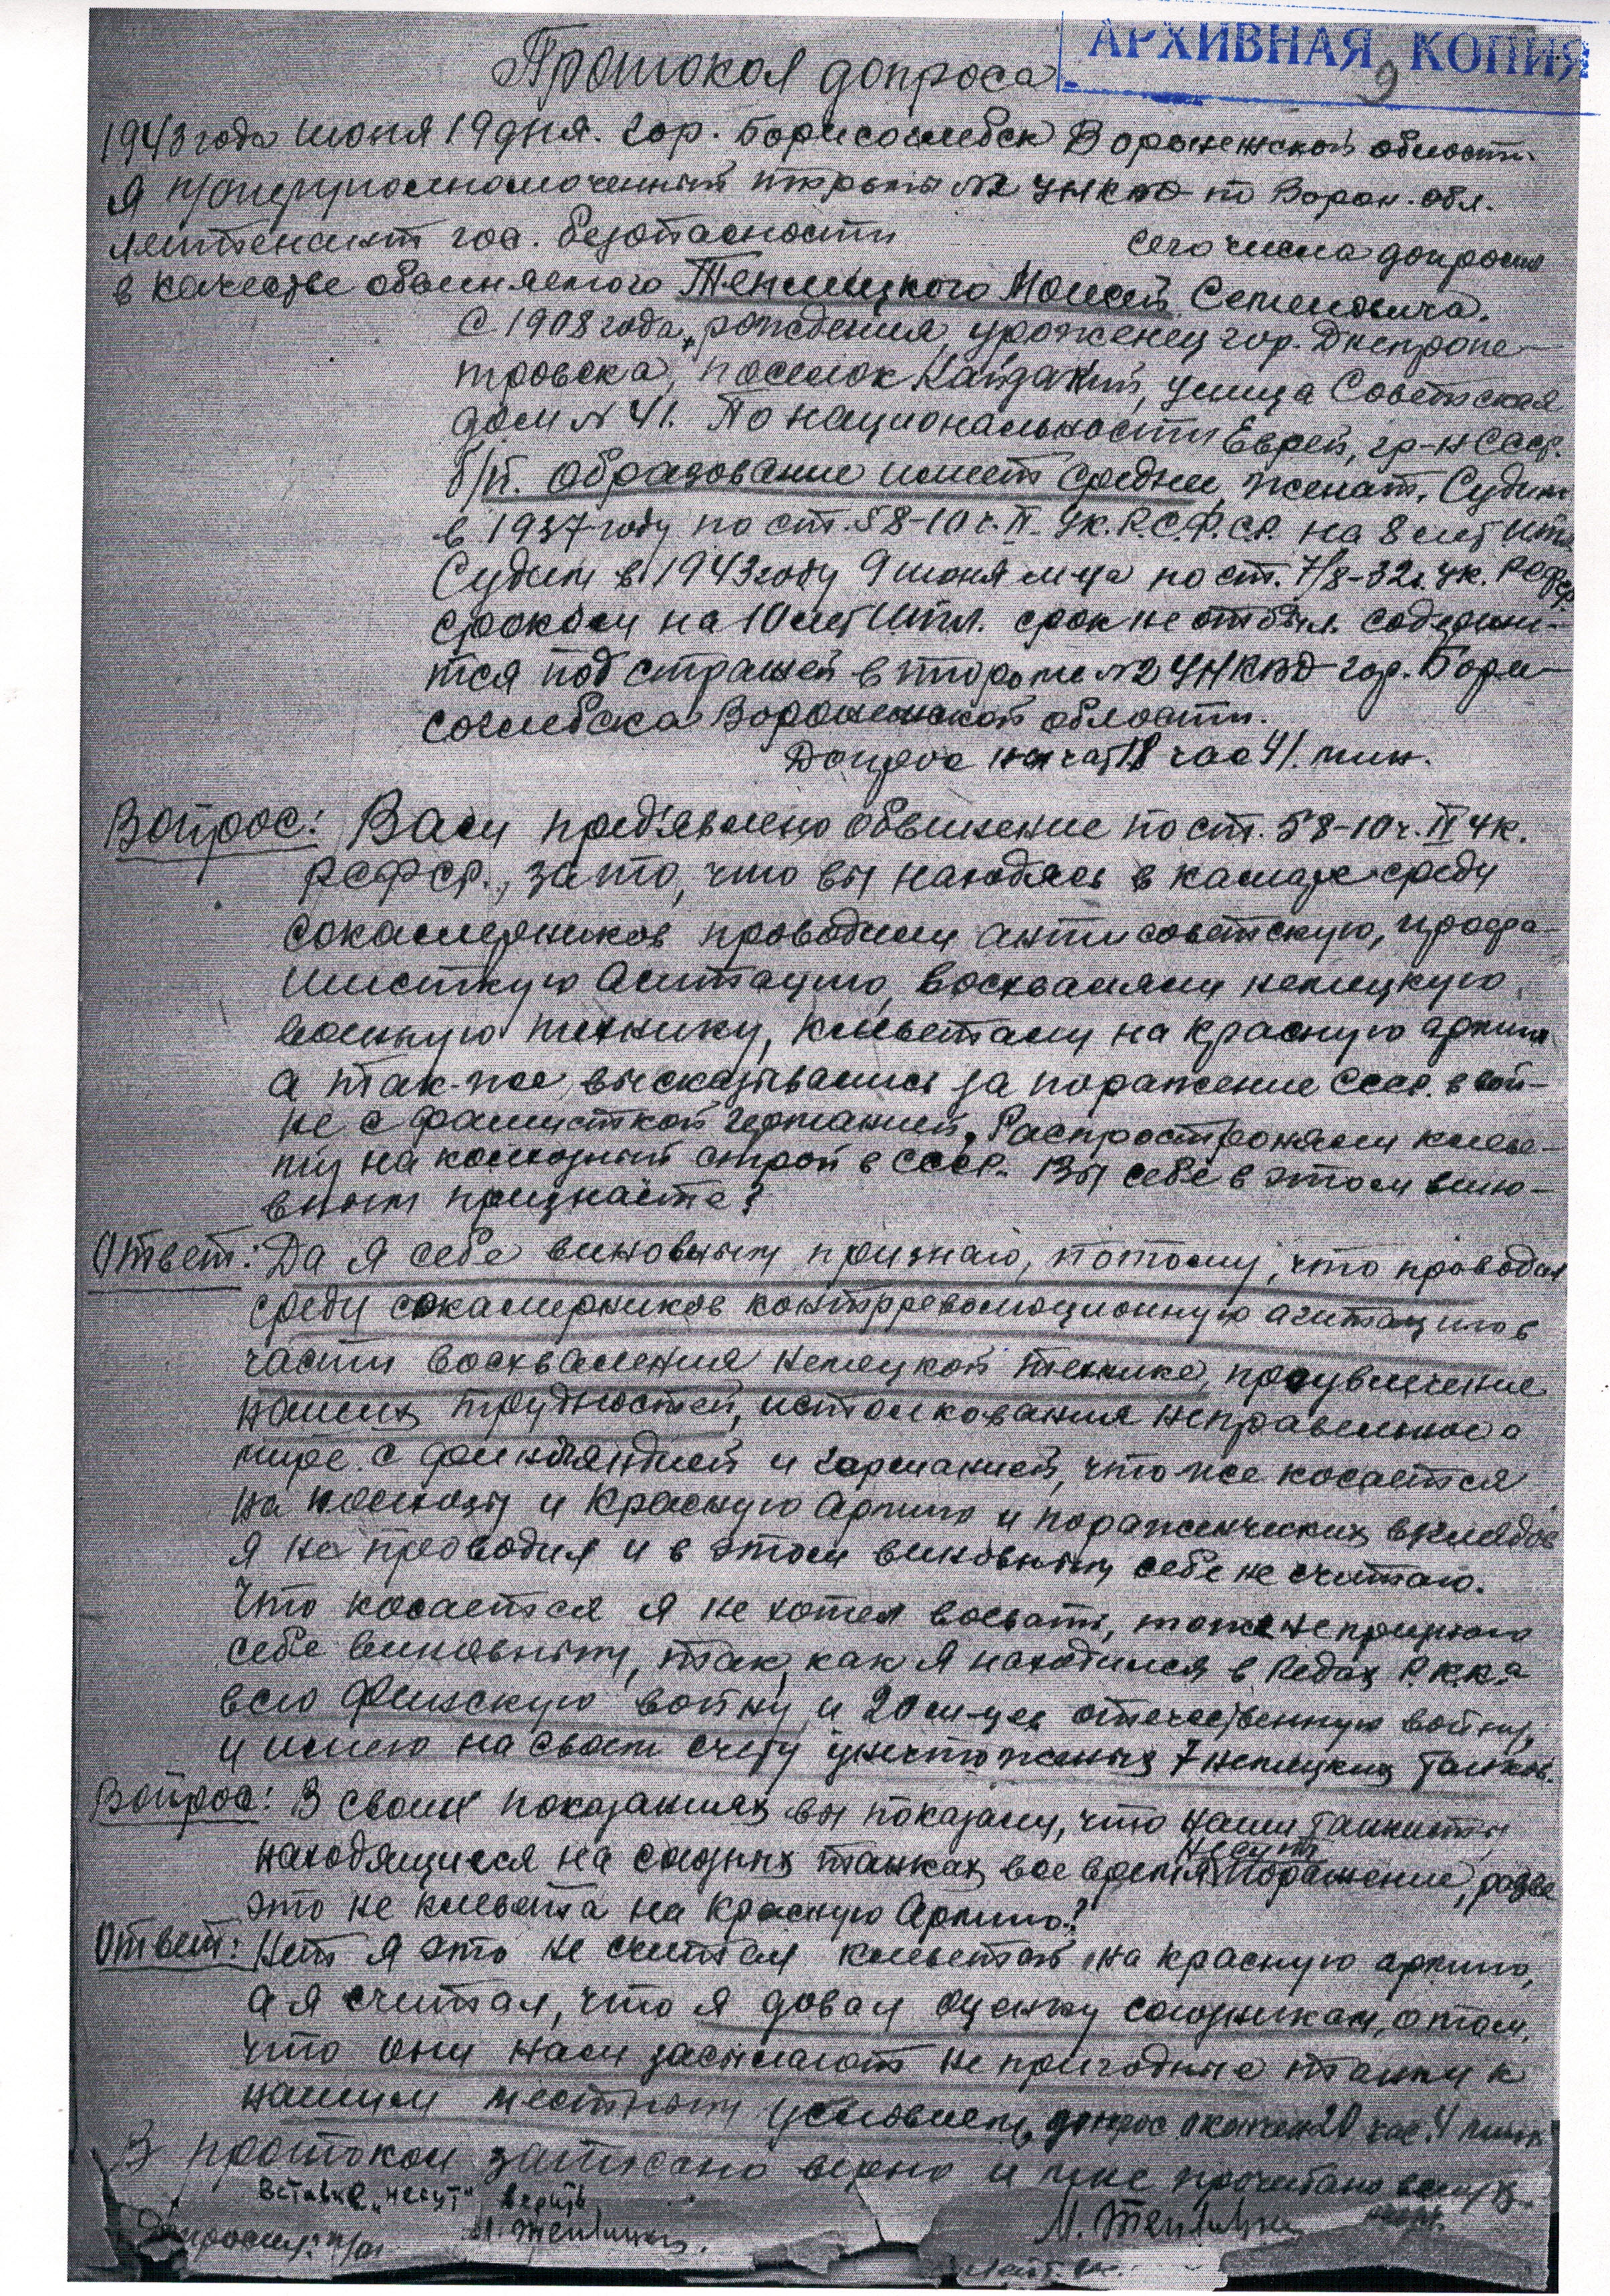 АРХИВНАЯ КОПИЯ
9
Протокол допроса
1943 года июня 19 дня. гор. Борисоглебск Воронежской области
Я оперуполномоченный тюрьмы №2 УНКВД по Ворон. обл.
лейтенант гос. безопасности сего числа допросил
в качестве обвиняемого Теплицкого Моисей Семеновича.
С 1908 года рождения, уроженец гор. Днепропе-
тровска, поселок Кайдакий, улица Советская
дом №41. По национальности Еврей, гр-н СССР.
б/п. образование имеет среднее, женат, Судим
в 1937 году по ст. 58-10 ч. II. УК. Р.С.Ф.С.Р. на 8 лет итл
Судим в 1943 году 9 июня м-ца по ст. 7/8-32г. УК. РСФСР.
сроком на 10 лет Итл. срок не отбыл. содержи-
тся под стражей в тюрьме №2 УНКВД гор. Бори-
соглебска Воронежской области.
Допрос начат 18 час 41. мин.
Вопрос: Вам пред'явлено обвинение по ст. 58-10 ч. II УК.
РСФСР., за то, что вы находясь в камере среди
сокамерников проводили антисоветскую, профа-
шисткую агитацию, восхваляли немецкую
военную технику, клеветали на красную армию
а так-же высказывались за поражение СССР. в вой-
не с фашисткой германией, Распространяли клеве-
ту на колхозный строй в СССР. Вы себе в этом вино-
вным признаете?
Ответ: Да я себе виновным признаю, потому, что проводил
среди сокамерников контрреволюционную агитацию в
части восхваления немецкой технике, преувеличение
наших трудностей, истолкования неправельное о
мире с финляндией и германией, что же косается
на колхозы и Красную Армию и пораженческих взглядов
я не проводил и в этом виновным себе не считаю.
Что косается я не хотел воевать, тоже не признаю
себе виновным, так, как я находился в Рядах Р.К.К.А
всю Финскую войну и 20 м-цев отечественную войну,
и имею на своем счету уничтоженых 7 немецких танков.
Вопрос: В своих показаниях вы показали, что наши танкисты
несут
находящиеся на союзных танках все время поражение, разве
это не клевета на Красную Армию?
Ответ: Нет я это не считал клеветать на красную армию,
а я считал, что я довал оценку союзникам, о том,
что они нам засылают не пригодные танки к
нашим местным условием, допрос окончен 20 час. 4 мин
В протокол записано верно и мне прочитано вслух
Вставке „несут" верить
М. Теплицкий.
М. Теплицкий
Допросил: